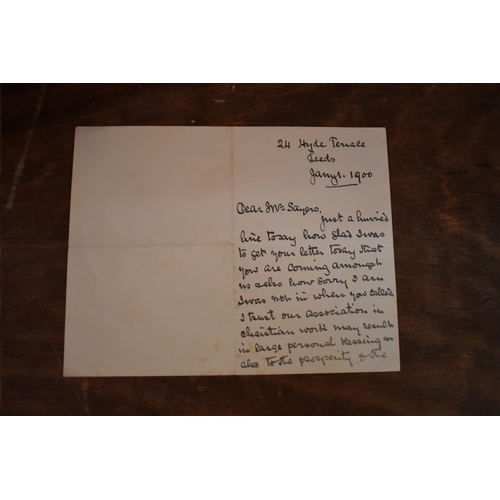 24 Hyde Terrace
Leeds
Jany 1. 1900
Dear Mr Sayers,
Just a hurried
line to say how glad I was
to get your letter today & that
you are coming amongst
us & also how sorry I am
I was not in when you called
I trust our association in
Christian work may result
in large personal blessing as
also to the prosperity of the